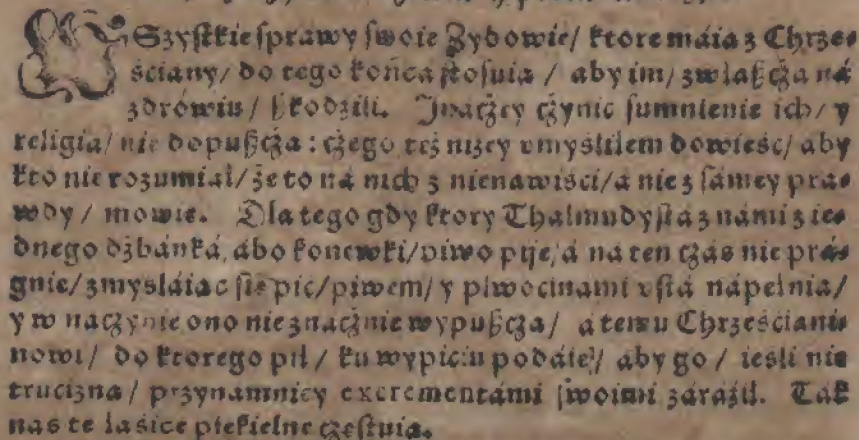 WSzystkie sprawy swoie Zydowie/ ktore máia z Chrze-
ściany/ do tego końca stosuia / aby im/ zwłaszcża ná
zdrówiu / szkodzili. Jnacżey cżynic sumnienie ich/ y
religia/ nie dopuszcża : cżego też niżey vmyśliłem dowieść/ aby
kto nie rozumiał/ że to ná nich z nienawiści/ á nie z sámey pra-
wdy / mowie. Dla tego gdy ktory Thalmudystá z námi z ie-
dnego dżbánká, ábo konewki/ piwo pije/ á na ten cżás nie prá-
gnie/ zmysláiac się pic/ piwem/ y plwocinami vstá nápełnia/
y w nacżynie ono nieznácżnie wypuszcża / á temu Chrześciani-
nowi/ do ktorego pił / ku wypiciu podáie/ aby go / iesli nie
trucizna / przynamniey excrementámi swoimi záráźił. Ták
nas te łásice piekielne cżestuia.